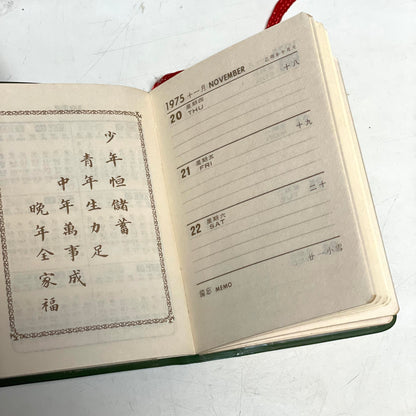 少年恒儲蓄
青年生力足
中年萬事成
晚年全家福
1975 十一月 NOVEMBER
20 星期四 THU 十八
21 星期五 FRI 十九
22 星期六 SAT 二十
廿一小雪
備忘 MEMO